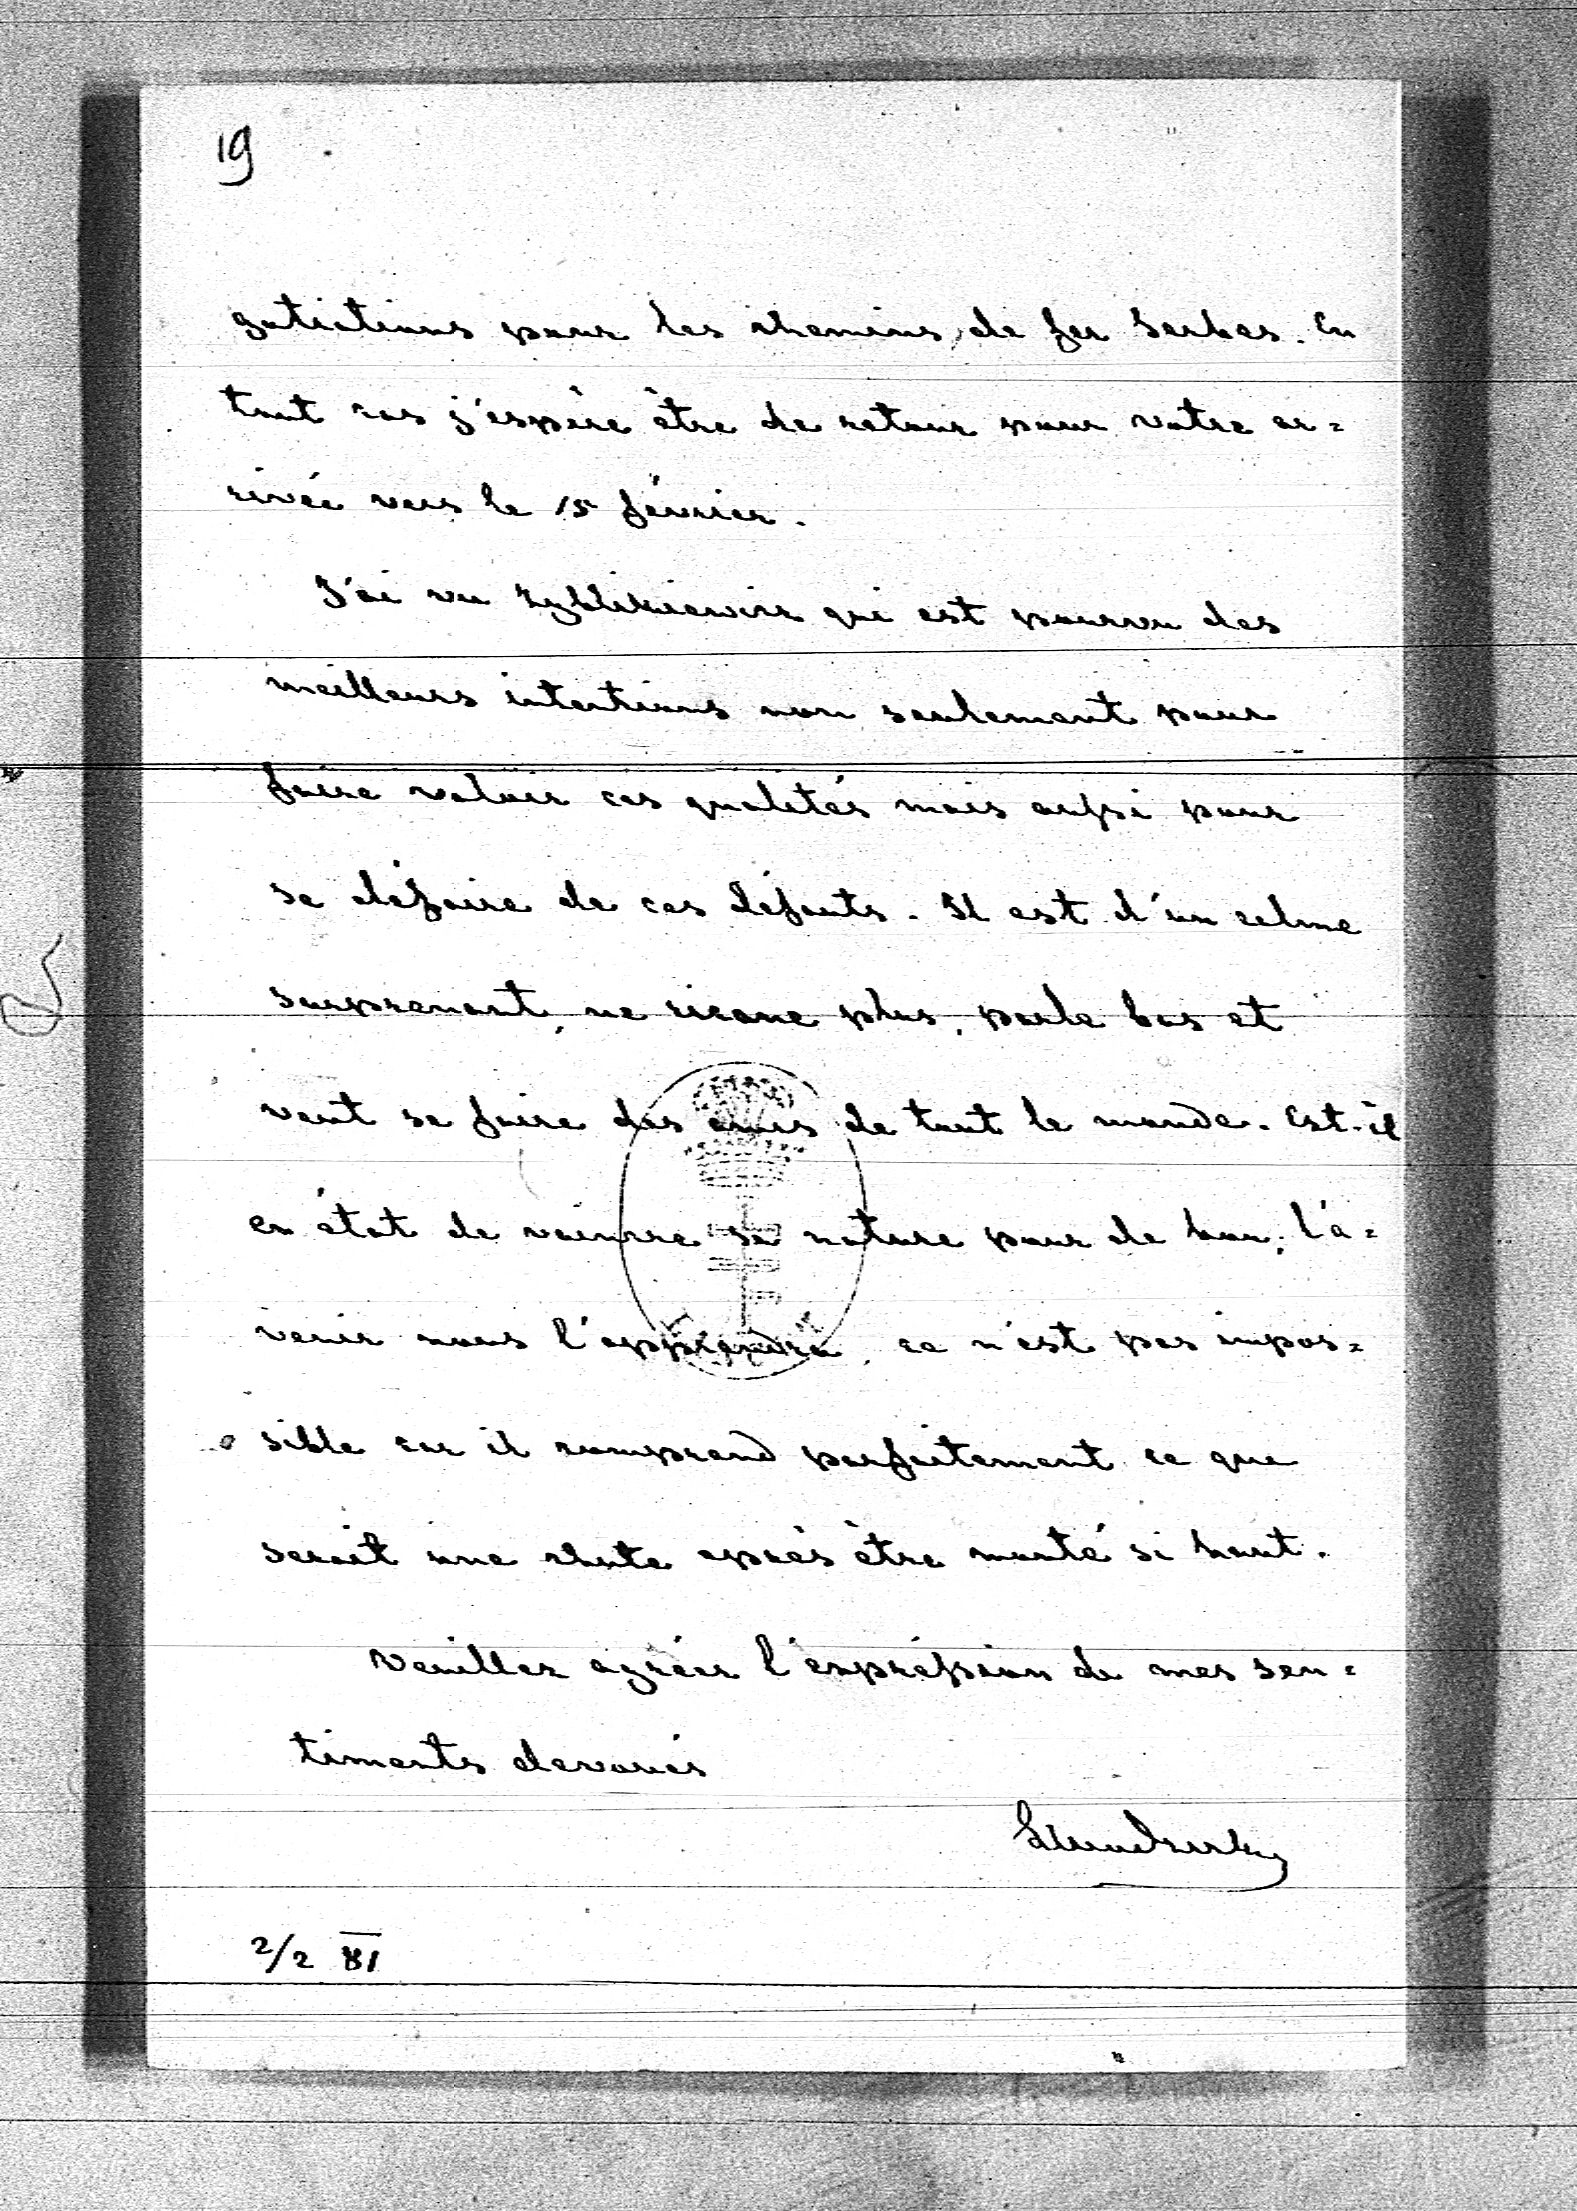 19
gotiations pour les chemins de fer Serbes. En
tout cas j'espère être de retour pour votre ar=
rivée vers le 15 février.
J'ai vu Zyblikiewicz qui est pourvu des
meilleurs intentions non seulement pour
faire valoir ces qualités mais aussi pour
se défaire de ces défauts. Il est d'un calme
surprenant, ne ricane plus, parle bas et
veut se faire des amis de tout le monde. Est-il
en état de vaincre sa nature pour de bon, l'a=
venir nous l'apprendra, ce n'est pas impos=
sible car il comprend parfaitement ce que
serait une chute après être monté si haut.
Veuillez agréer l'expréssion de mes sen=
timents devoués
2/2 81